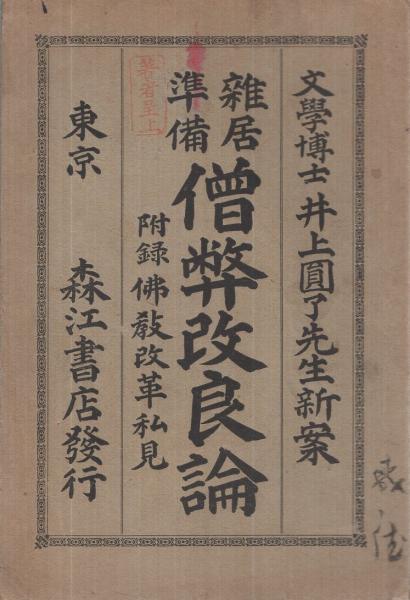 文學博士井上圓了先生新案
雜居
準備
僧弊改良論
附録佛敎改革私見
東京 森江書店發行
著者呈上